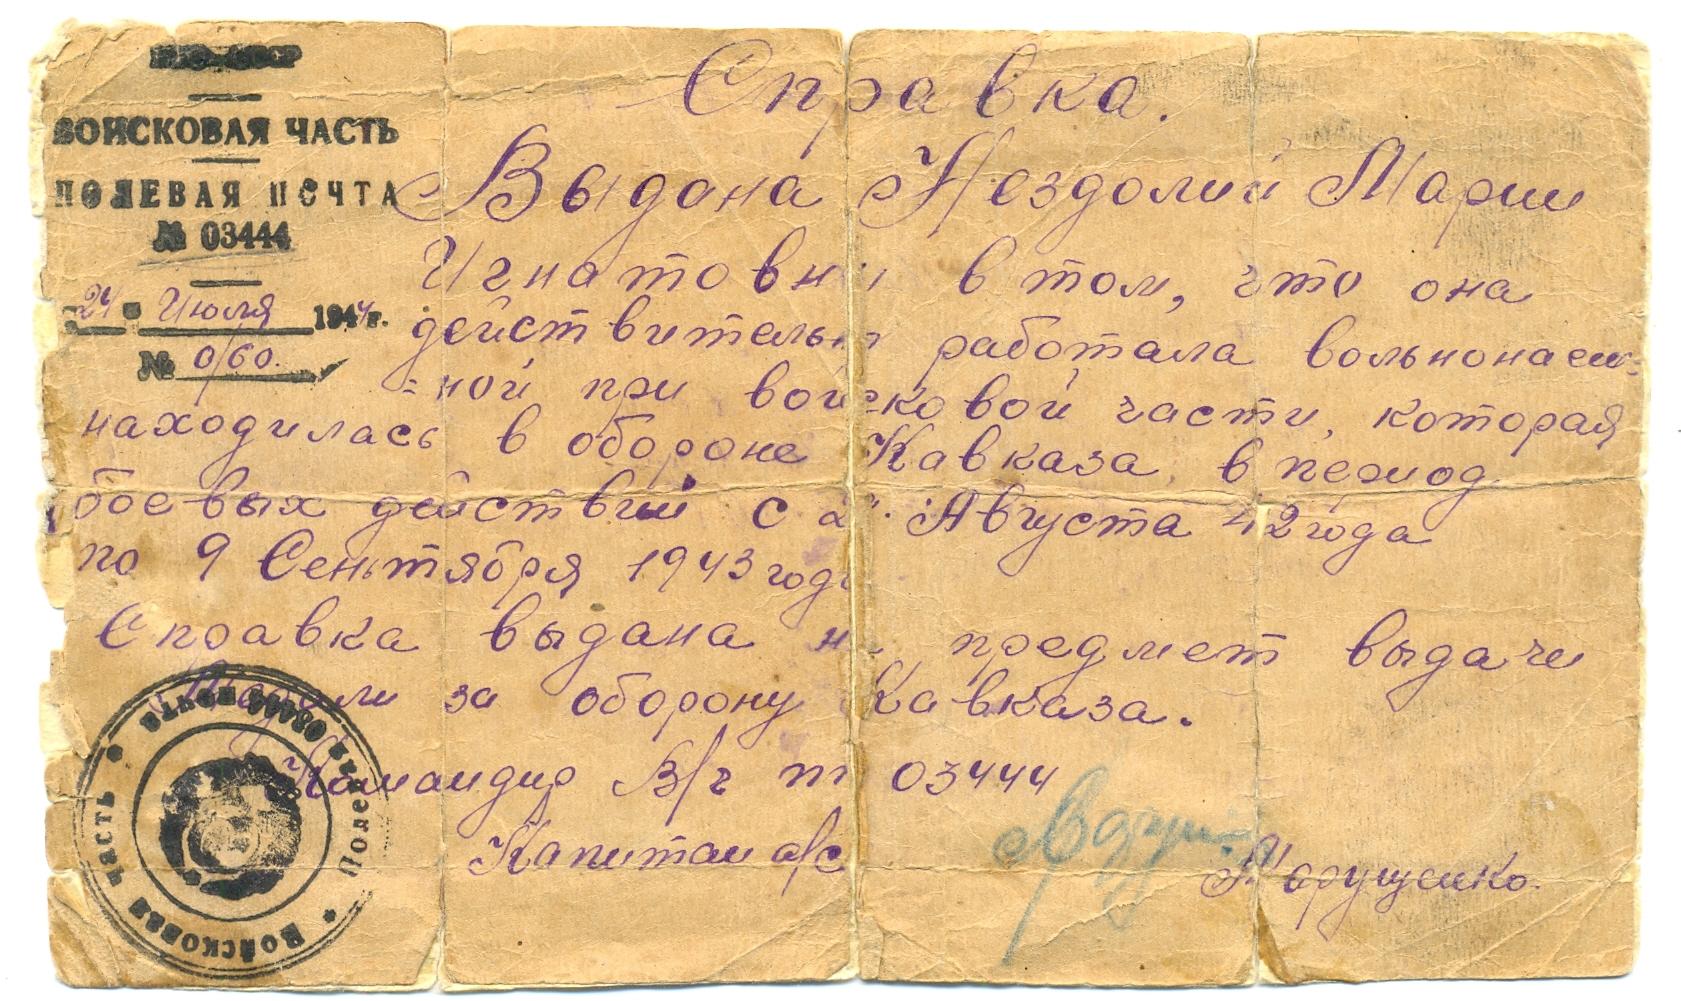 ВОЙСКОВАЯ ЧАСТЬ
ПОЛЕВАЯ ПОЧТА
№ 03444
24 Июля 1944 г.
№ 0/60.
Справка.
Выдана Нездолий Марии
Игнатовне в том, что она
действительно работала вольнонаем-
=ной при войсковой части, которая
находилась в обороне Кавказа, в период
боевых действий с Августа 42 года
по 9 Сентября 1943 года
Справка выдана на предмет выдачи
Медали за оборону Кавказа.
Командир В/ч пп 03444
Капитан а/с Марущенко.
Войсковая часть * Полевая почта 03444 *